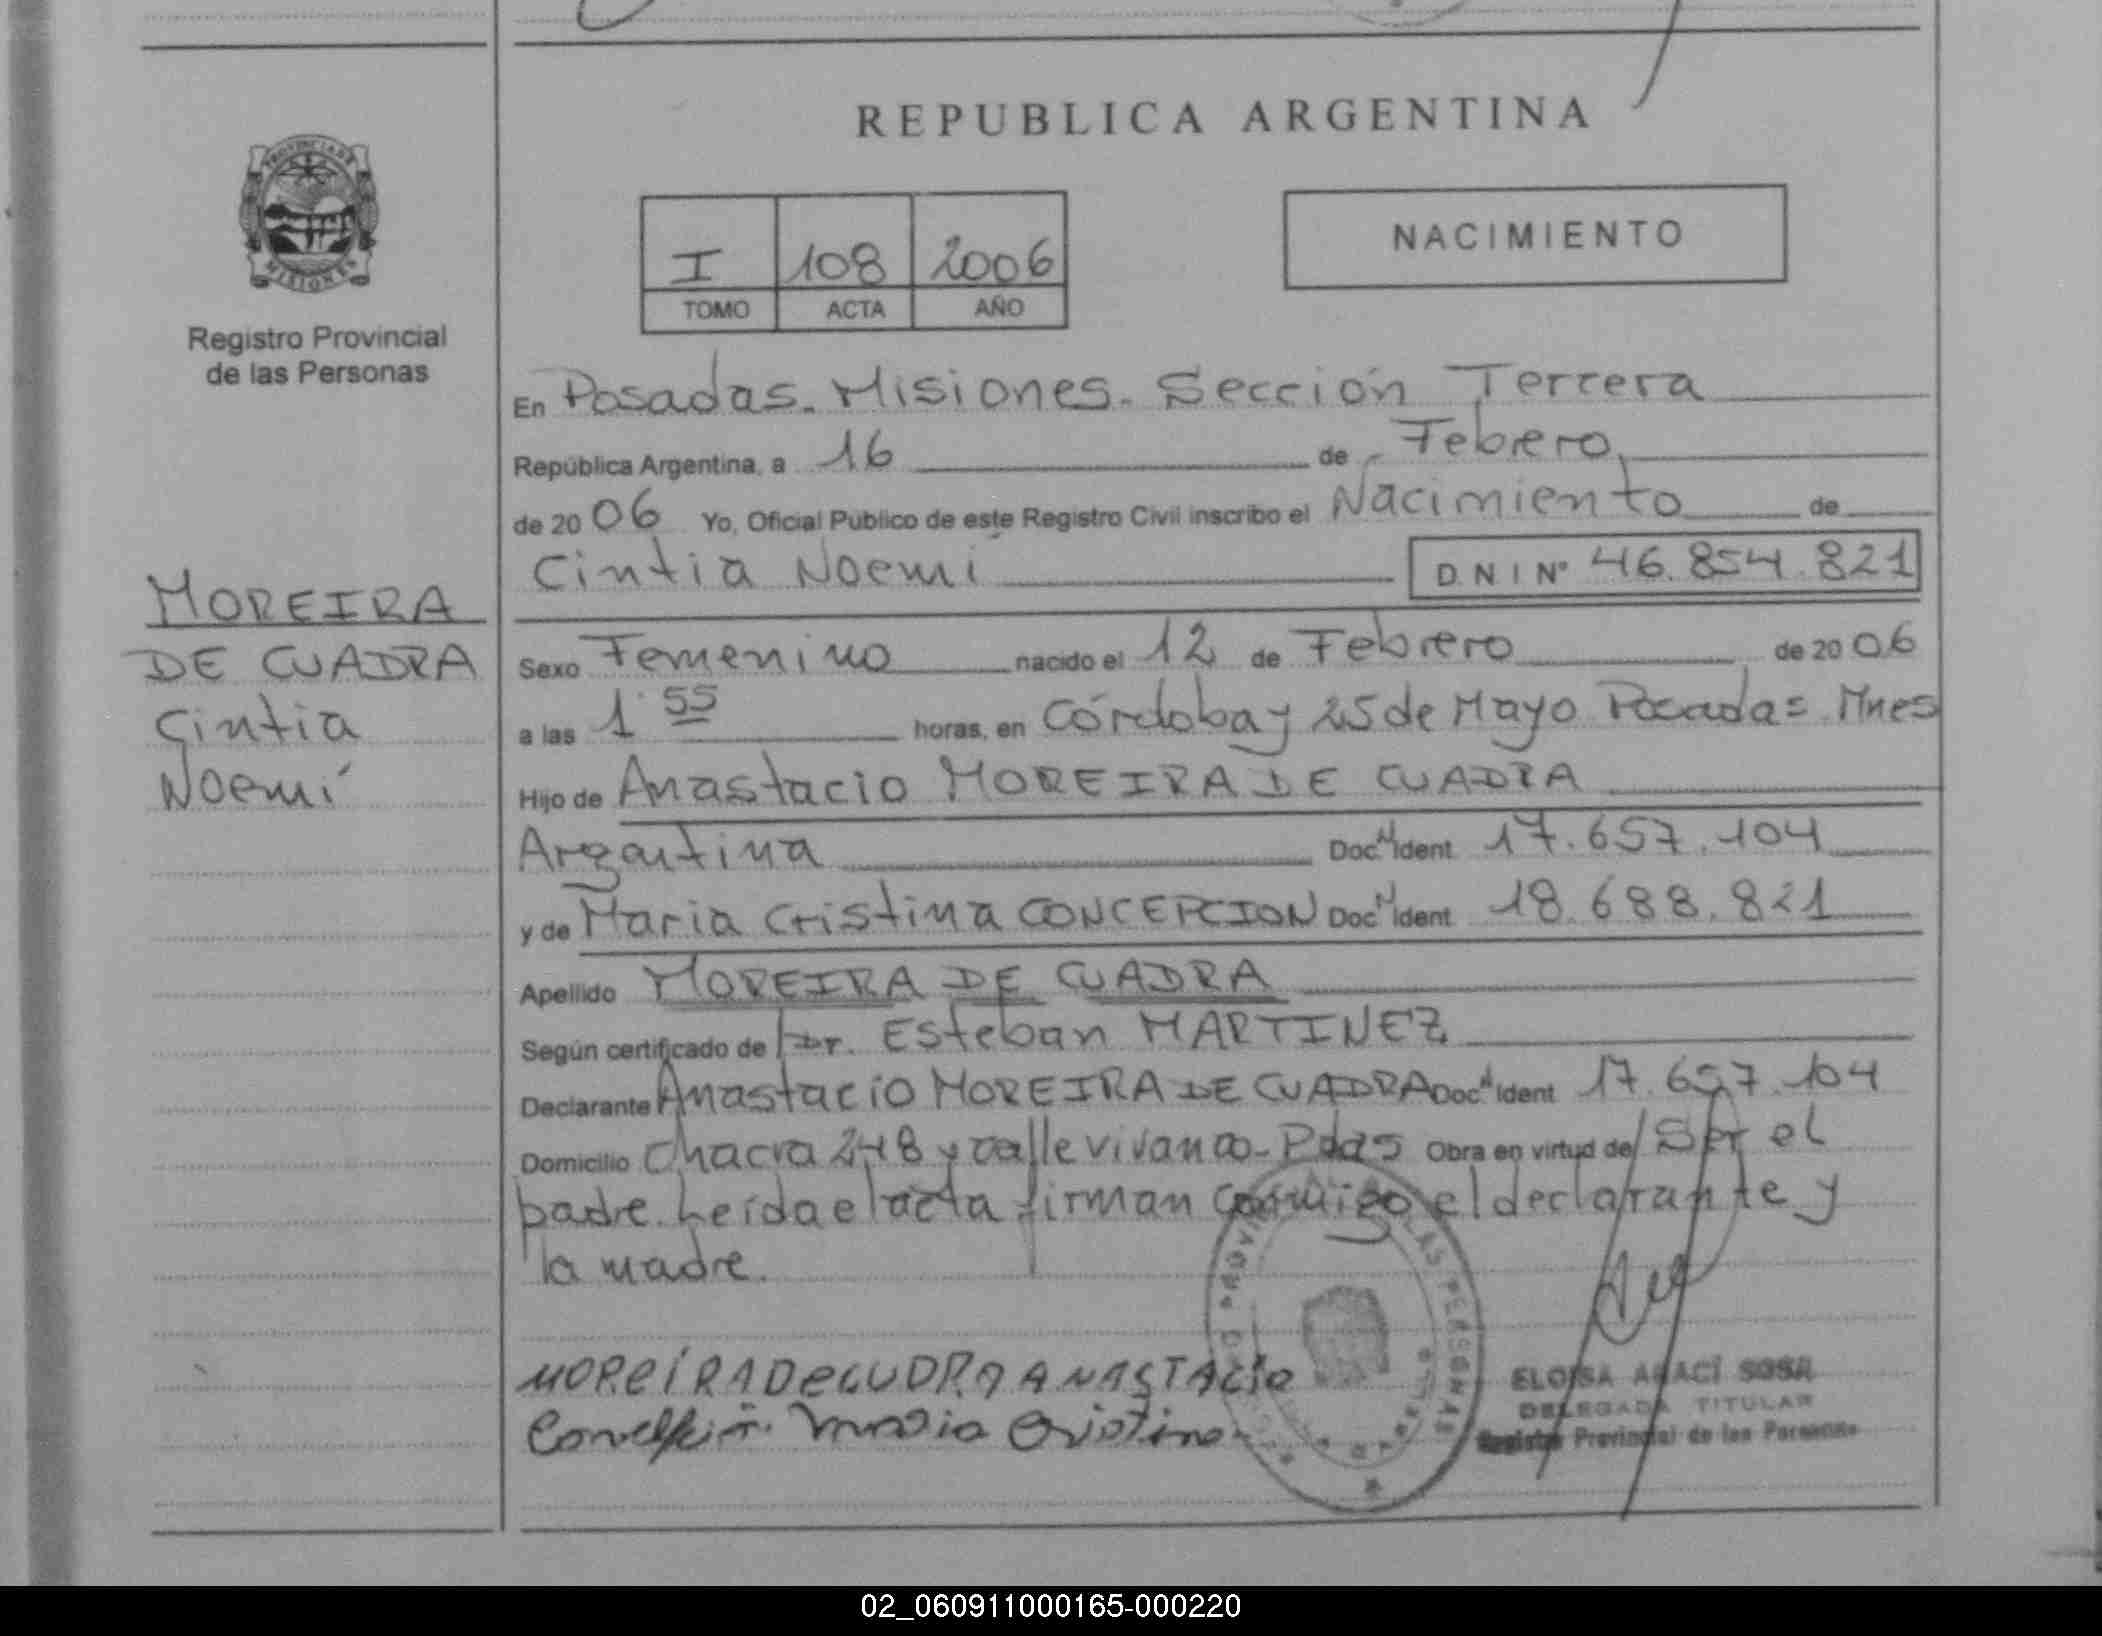 REPUBLICA ARGENTINA
PROVINCIA DE
MISIONES
Registro Provincial
de las Personas
I 108 2006
TOMO ACTA AÑO
NACIMIENTO
MOREIRA
DE CUADRA
Cintia
Noemí
En Posadas. Misiones. Sección Tercera
República Argentina, a 16 de Febrero
de 2006 Yo, Oficial Público de este Registro Civil inscribo el Nacimiento de
Cintia Noemí D N I Nº 46.854.821
Sexo Femenino nacido el 12 de Febrero de 2006
a las 1 55 horas, en Córdoba y 25 de Mayo Posadas Mnes
Hijo de Anastacio MOREIRA DE CUADRA
Argentina Doc N Ident 17.657.104
y de Maria Cristina CONCEPCION Doc N Ident 18.688.821
Apellido MOREIRA DE CUADRA
Según certificado de Dr. Esteban MARTINEZ
Declarante Anastacio MOREIRA DE CUADRA Doc N Ident 17.657.104
Domicilio Chacra 248 y calle vivanco - Pdas Obra en virtud de Ser el
padre. Leída el acta firman conmigo el declarante y
la madre.
MOREIRA DE CUDRA ANASTACIO
Concepción Maria Cristina
ELOISA ARACÍ SOSA
DELEGADA TITULAR
Registro Provincial de las Personas
02_060911000165-000220